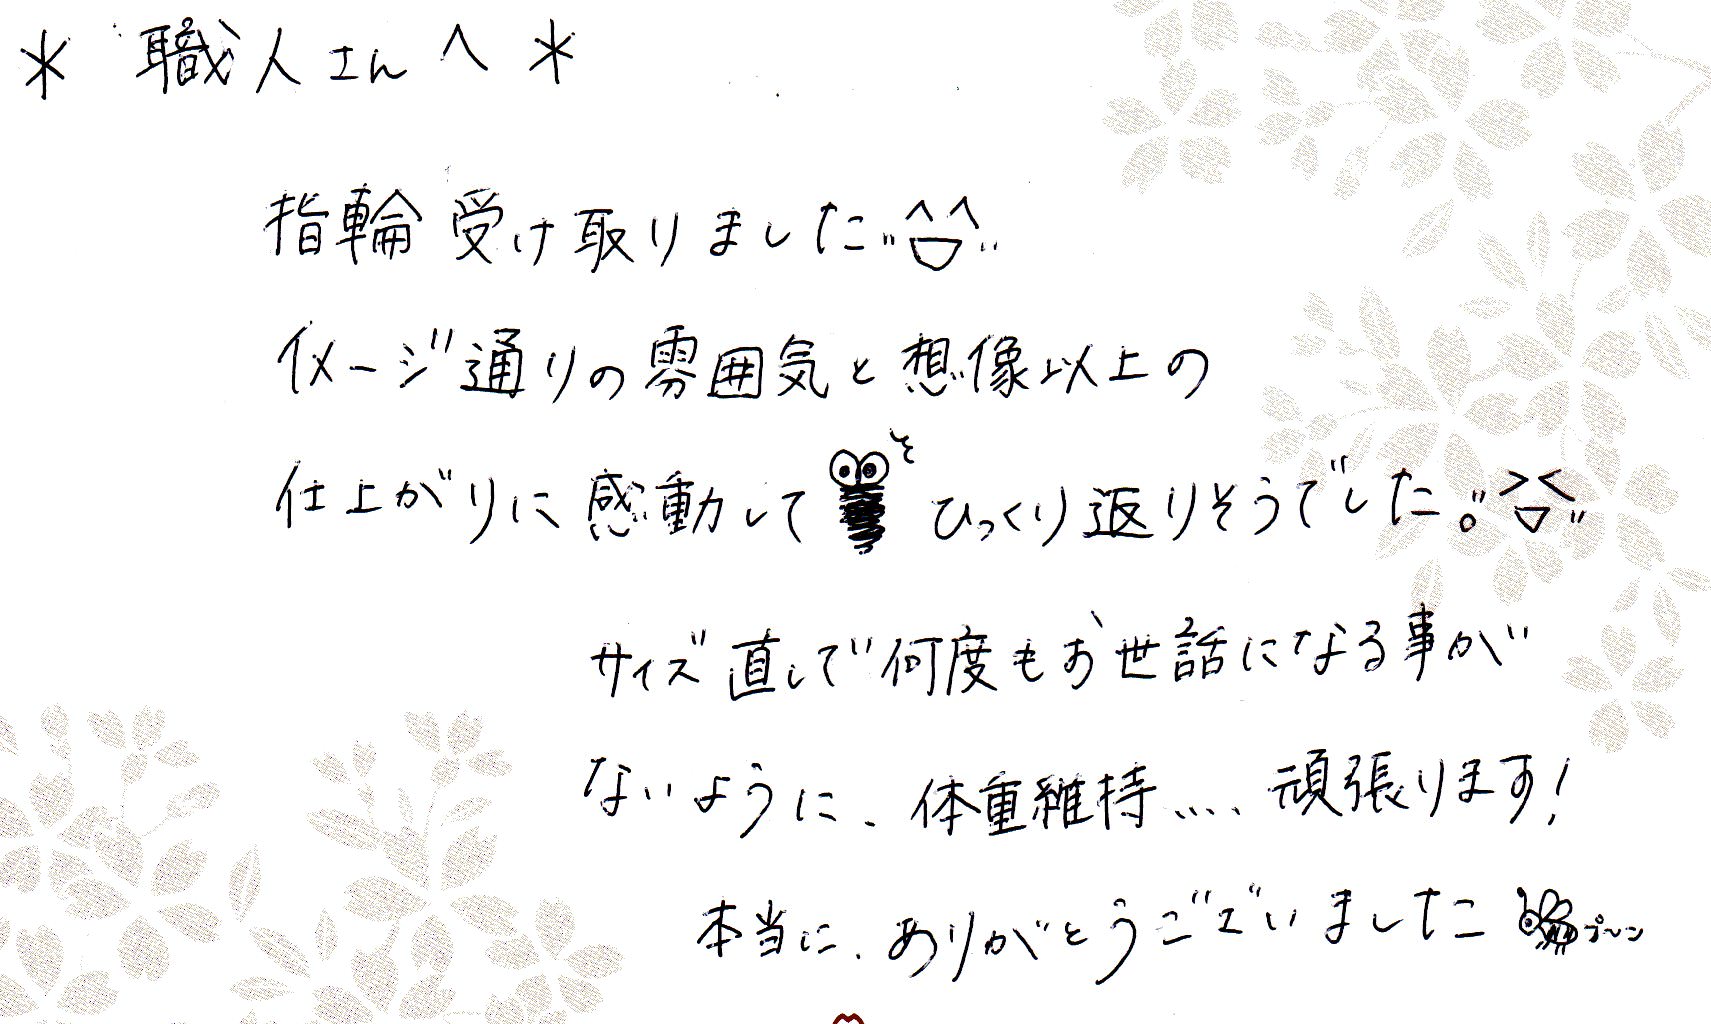 ＊ 職人さんへ ＊
指輪受け取りました
イメージ通りの雰囲気と想像以上の
仕上がりに感動して ひっくり返りそうでした。
サイズ直しで何度もお世話になる事が
ないように、体重維持‥‥頑張ります！
本当に、ありがとうございました プ〜ン